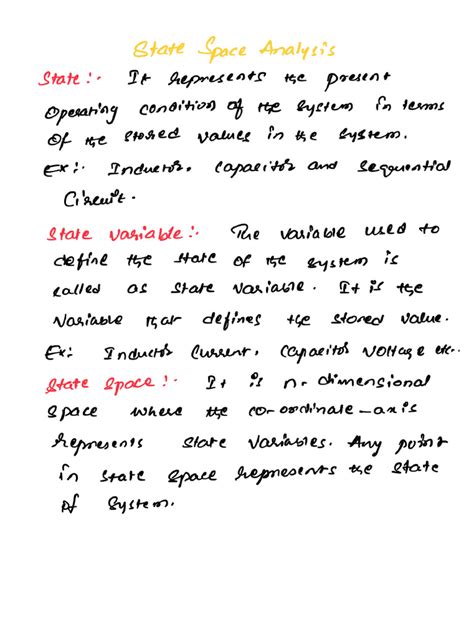 State Space Analysis
State :- It represents the present
Operating condition of the system in terms
of the stored values in the system.
Ex :- Inductor, Capacitor and Sequential
Circuit.
State variable :- The variable used to
define the state of the system is
called as state variable. It is the
variable that defines the stored value.
Ex: Inductor Current, Capacitor Voltage etc..
State Space :- It is n-dimensional
Space where the co-ordinate-axis
represents state variables. Any point
in state space represents the state
of system.